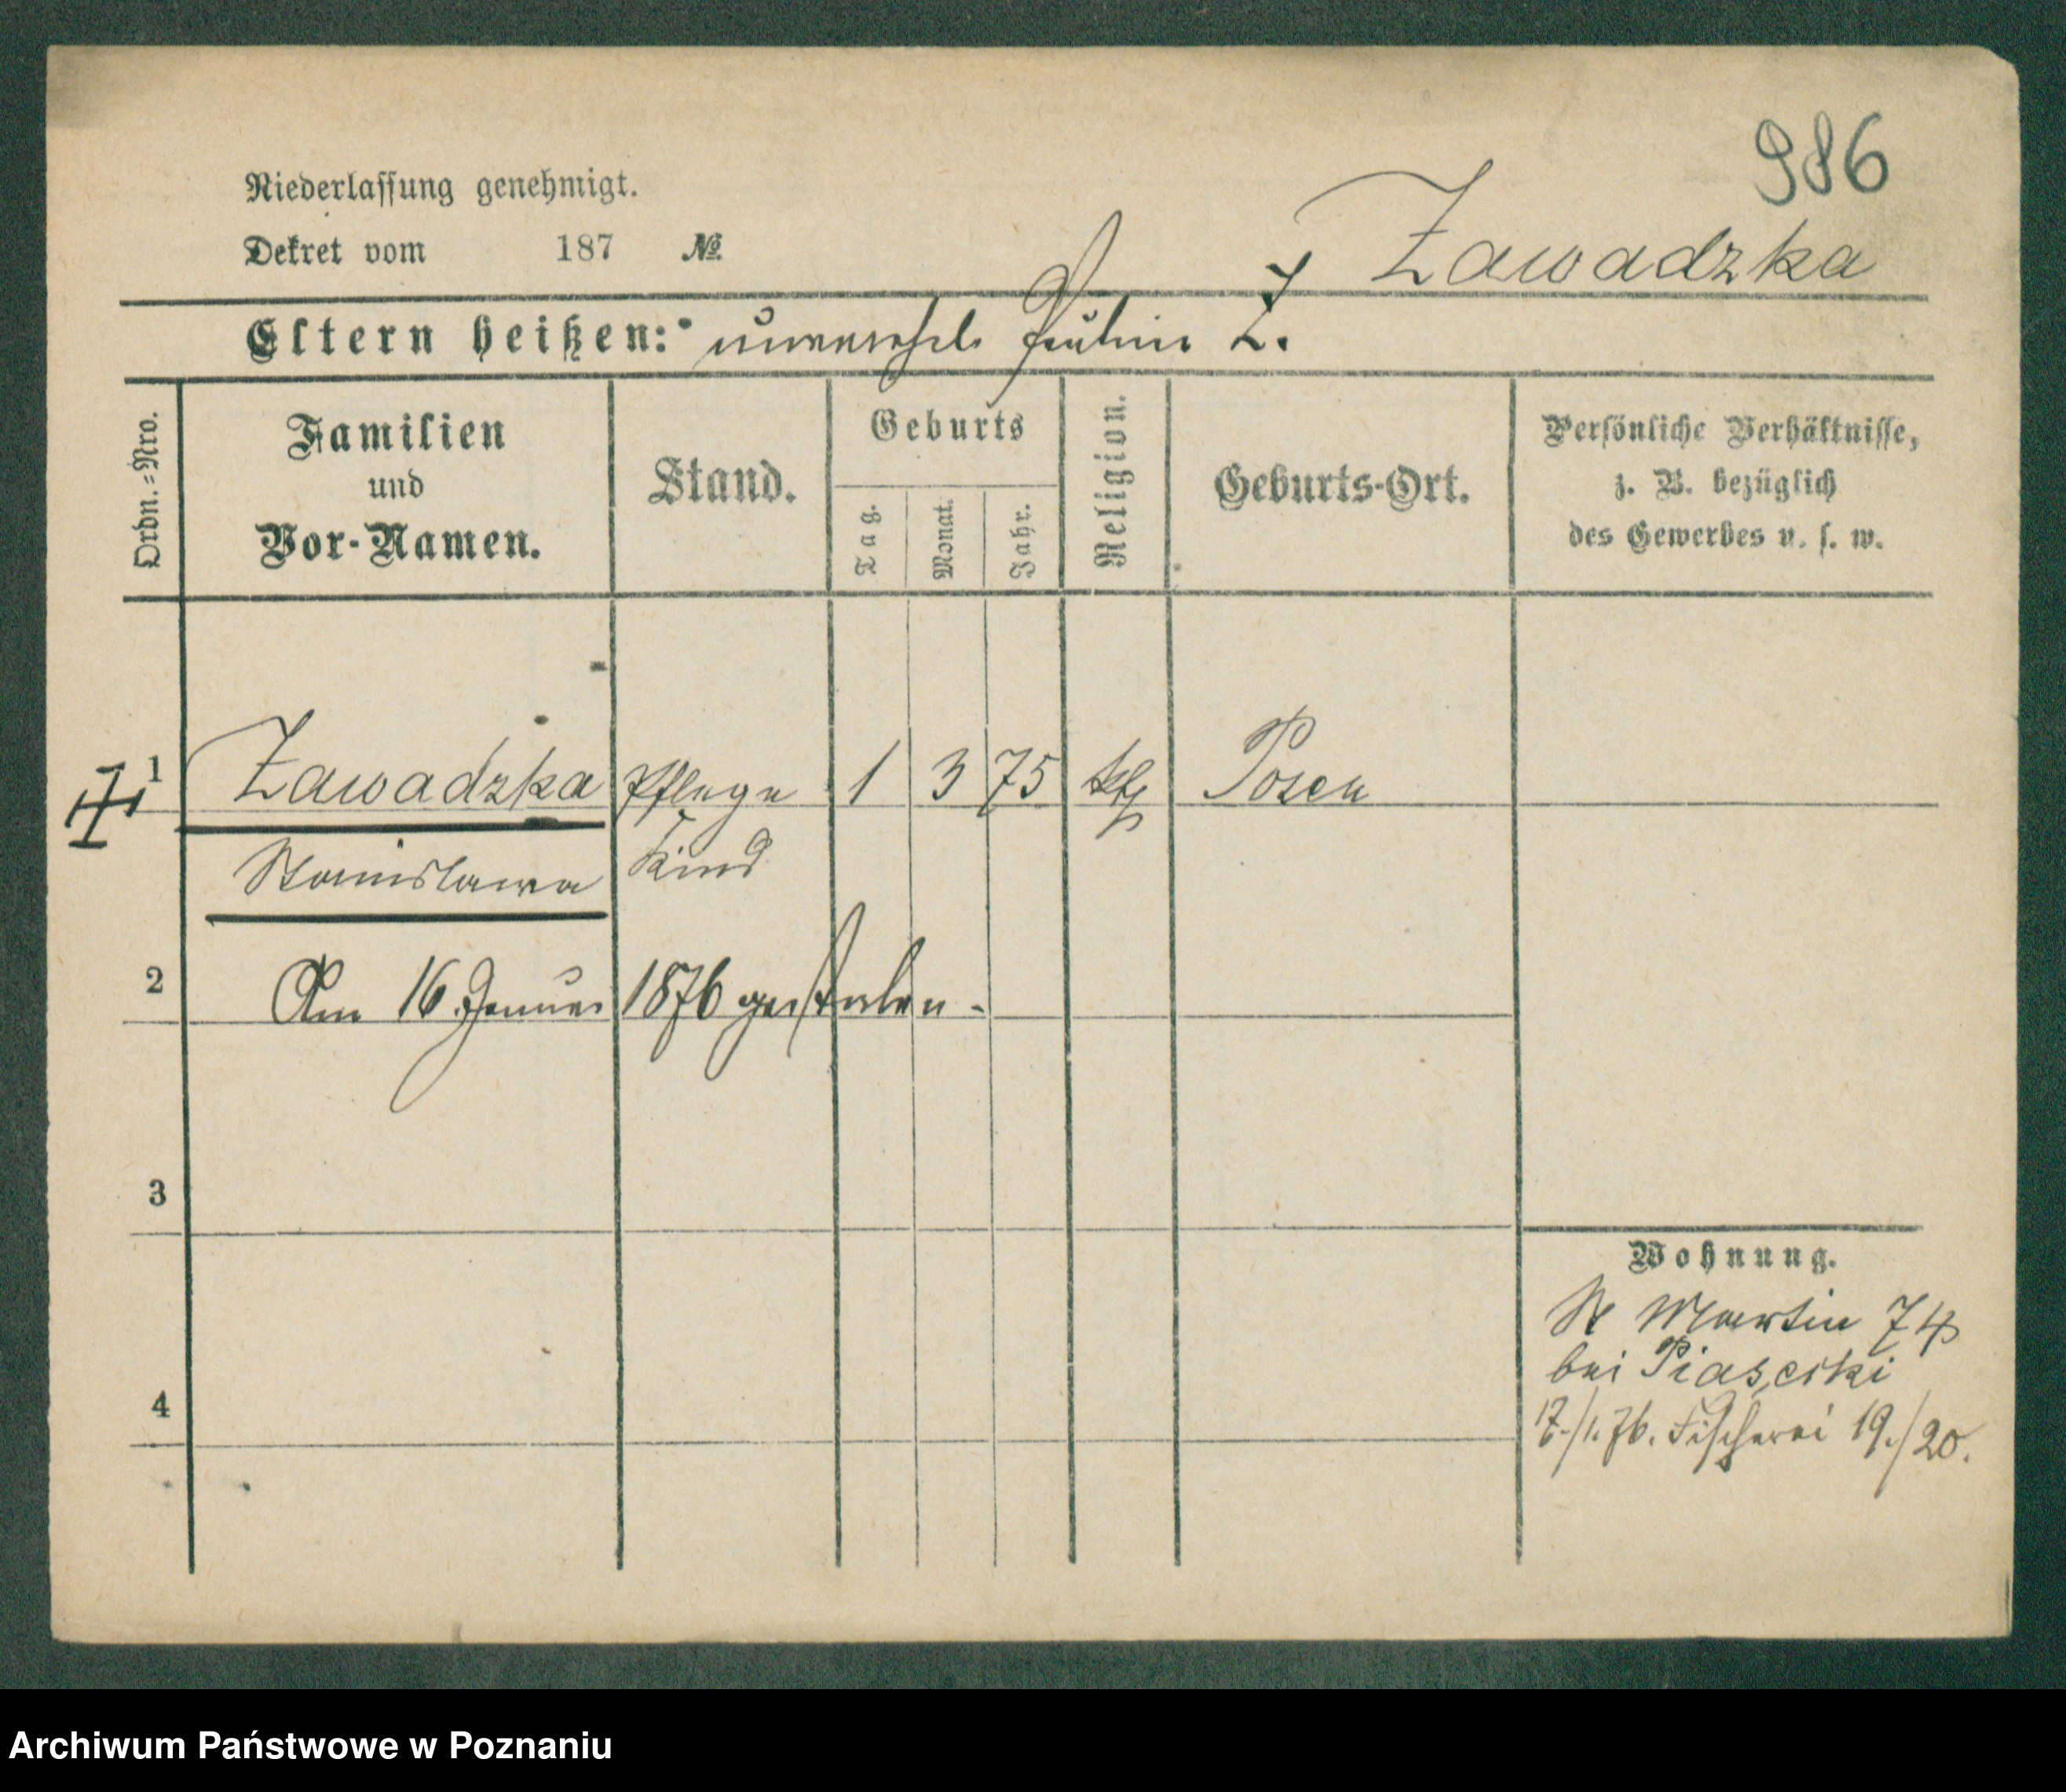 986
Niederlassung genehmigt.
Dekret vom 187 №
Zawadzka
Eltern heißen: unverehel. Pauline Z.
Ordn.-Nro.
Familien
und
Vor-Namen.
Stand.
Geburts
Tag.
Monat.
Jahr.
Religion.
Geburts-Ort.
Persönliche Verhältnisse,
z. B. bezüglich
des Gewerbes u. s. w.
1 Zawadzka Pflege 1 3 75 kth Posen
Stanislawa Kind
2 Am 16 Januar 1876 gestorben.
3
Wohnung.
St Martin 74
bei Piasecki
4
17./1. 76. Fischerei 19./20.
Archiwum Państwowe w Poznaniu